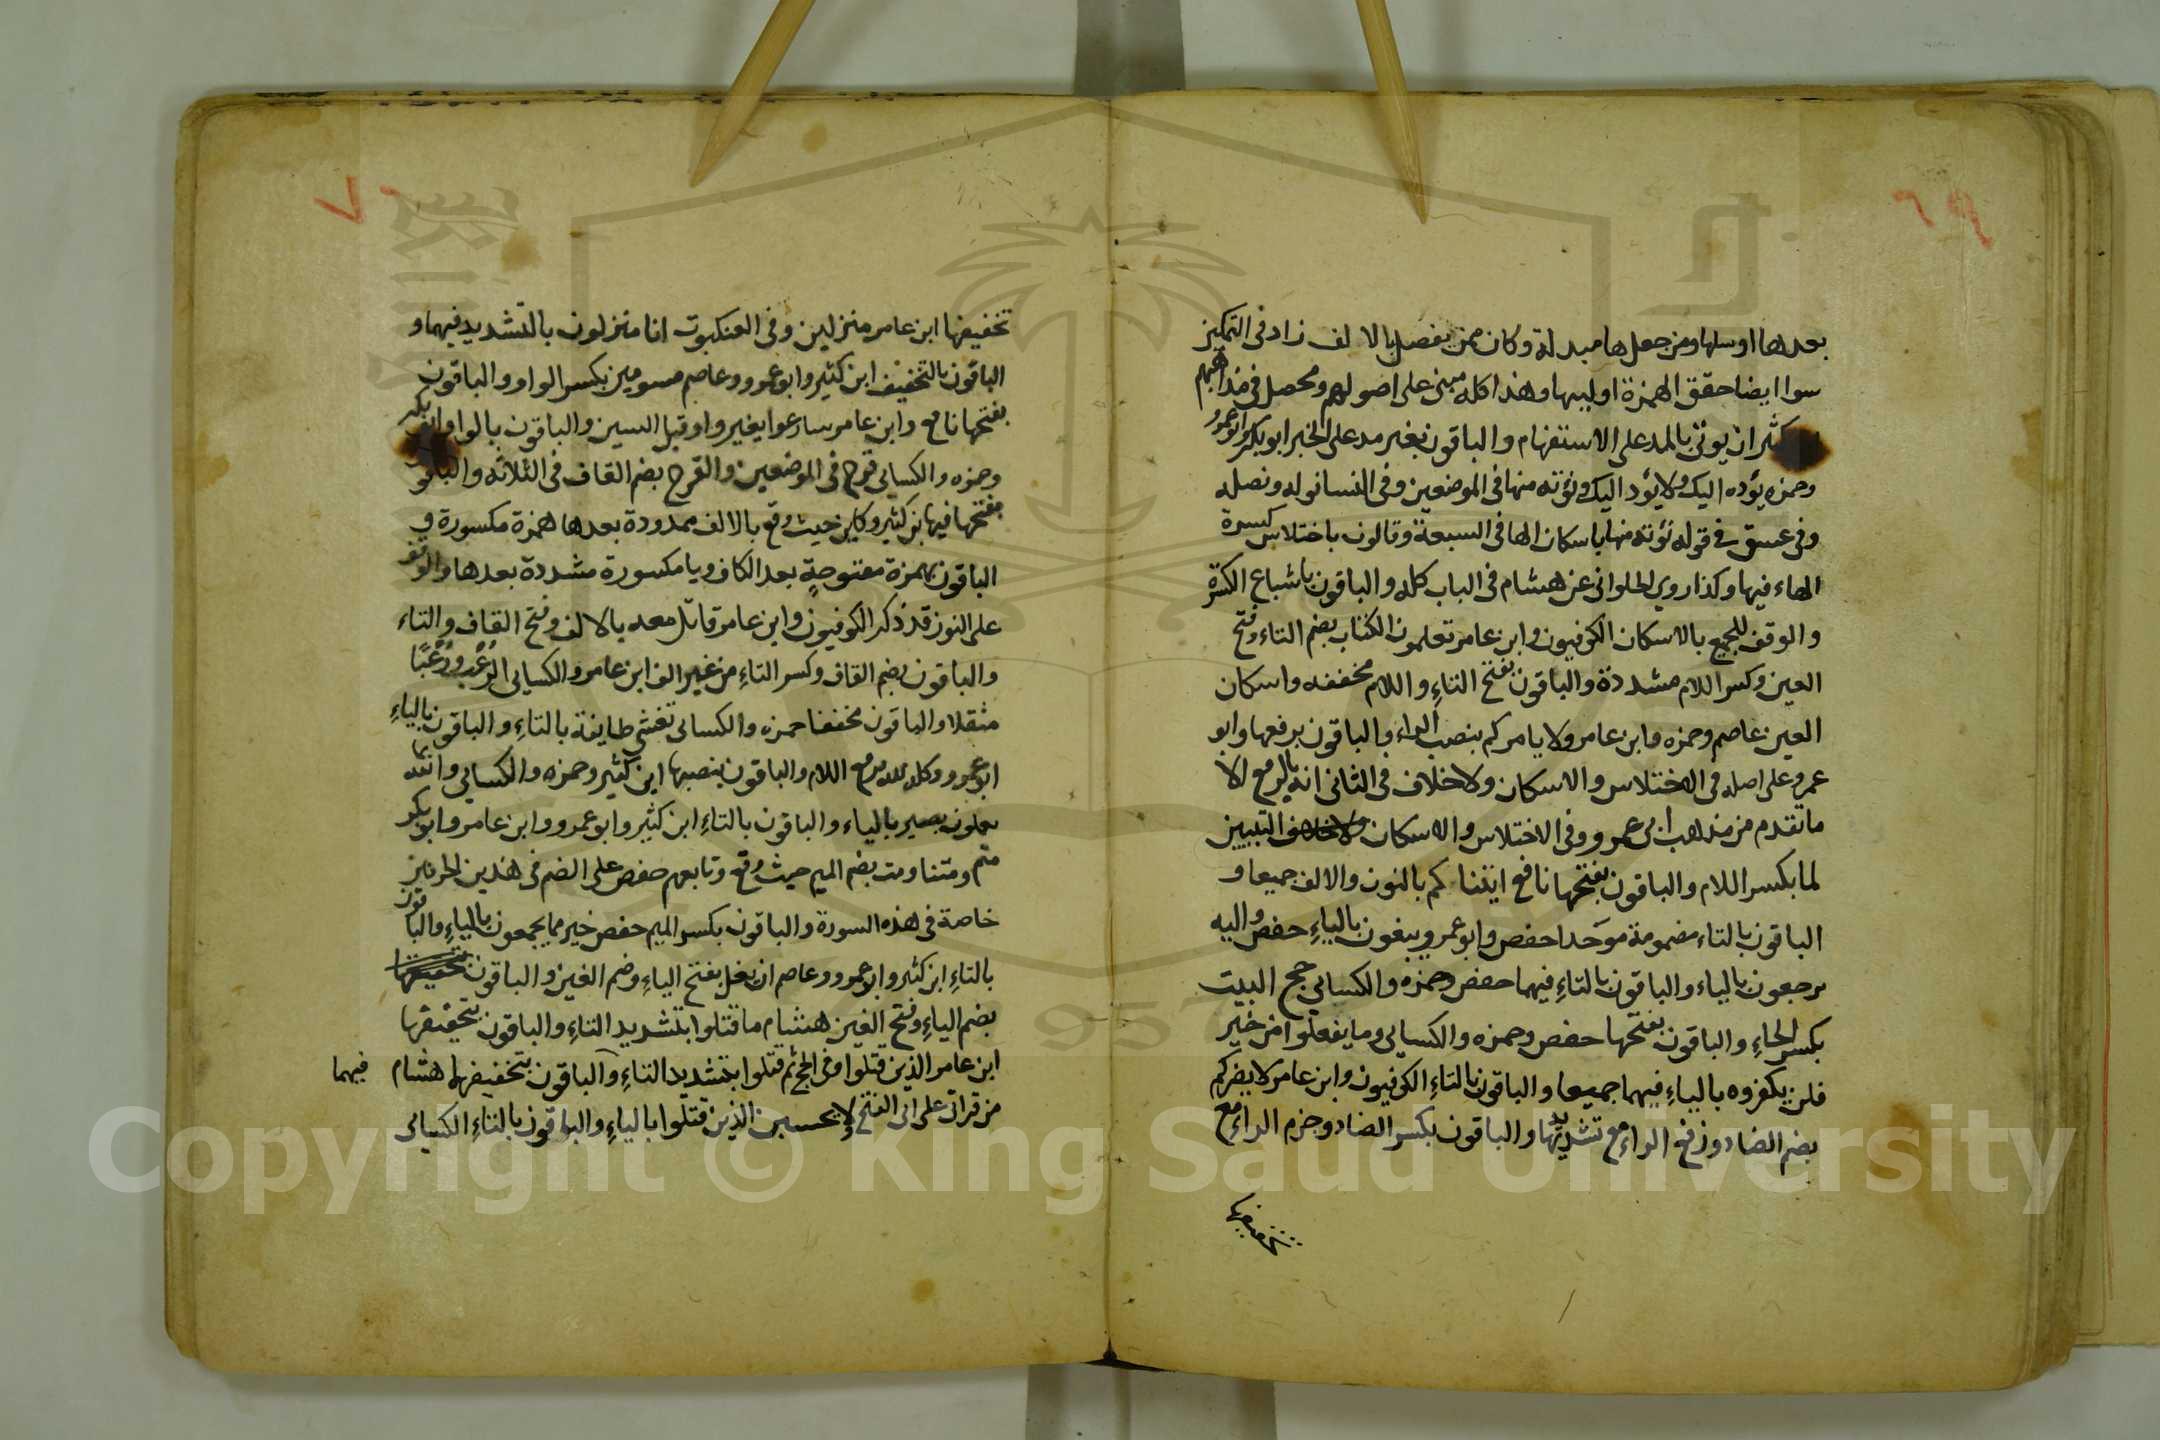 ٢٦
بعدها اوسلها ومن جعلها مبدلة وكان ممن يفصل بالالف زاد فى التمكين
سوا ايضا حقق الهمزة او لينها وهذا كله مبنى على اصولهم ومحصل فى مذاهبهم
كثير ان يوتى بالمد على الاستفهام والباقون بغير مد على الخبر ابو بكر وابو عمرو
وحمزه يؤده اليك ولا يؤد اليك ونؤته منها فى الموضعين وفى النسا نوله ونصله
وفى عسق فى قوله نؤته منها باسكان الها فى السبعة وقالون باختلاس كسرة
الهاء فيها وكذا روى الحلوانى عن هشام فى الباب كله والباقون باشباع الكسرة
والوقف للجميع بالاسكان الكوفيون وابن عامر تعلمون الكتاب بضم التاء وفتح
العين وكسر اللام مشددة والباقون بفتح التاء واللام مخففه واسكان
العين عاصم وحمزه وابن عامر ولا يامركم بنصب الراء والباقون برفعها وابو
عمرو على اصله فى الاختلاس والاسكان ولا خلاف فى الثانى انه بالرفع الا
ما تقدم من مذهب ابى عمرو وفى الاختلاس والاسكان التبيين
لما بكسر اللام والباقون بفتحها نافع اتيناكم بالنون والالف جميعا و
الباقون بالتاء مضمومة موحدا حفص وابو عمرو يبغون بالياء حفص واليه
يرجعون بالياء والباقون بالتاء فيهما حفص وحمزه والكسائى حج البيت
بكسر الحاء والباقون بفتحها حفص وحمزه والكسائى وما يفعلوا من خير
فلن يكفروه بالياء فيهما جميعا والباقون بالتاء الكوفيون وابن عامر لا يضركم
بضم الضاد ورفع الراء مع تشديدها والباقون بكسر الضاد وجزم الراء مع
تخفيفها
٢٧
تخفيفها ابن عامر منزلين وفى العنكبوت انا منزلون بالتشديد فيهما و
الباقون بالتخفيف ابن كثير وابو عمرو وعاصم مسومين بكسر الواو والباقون
بفتحها نافع وابن عامر سارعوا بغير واو قبل السين والباقون بالواو ابو بكر
وحمزه والكسائى قرح فى الموضعين والقرح بضم القاف فى الثلاثه والباقون
بفتحها فيها ابن كثير وكاين حيث وقع بالالف ممدودة بعدها همزة مكسورة و
الباقون بهمزة مفتوحة بعد الكاف ويا مكسورة مشددة بعدها والوقف
على النون قد ذكر الكوفيون وابن عامر قاتل معه بالالف وفتح القاف والتاء
والباقون بضم القاف وكسر التاء من غير الف ابن عامر والكسائى الرعب ورعبا
مثقلا والباقون مخففا حمزه والكسائى تغشى طايفة بالتاء والباقون بالياء
ابو عمرو وكله لله برفع اللام والباقون بنصبها ابن كثير وحمزه والكسائى والله بما
يعملون بصير بالياء والباقون بالتاء ابن كثير وابو عمرو وابن عامر وابو بكر
متم ومتنا ومت بضم الميم حيث وقع وتابعهم حفص على الضم فى هذين الحرفين
خاصة فى هذه السورة والباقون بكسر الميم حفص خير مما يجمعون بالياء والباقون
بالتاء ابن كثير وابو عمرو وعاصم ان يغل بفتح الياء وضم الغين والباقون
بضم الياء وفتح الغين هشام ما قتلوا بتشديد التاء والباقون بتخفيفها
ابن عامر الذين قتلوا وفى الحج ثم قتلوا بتشديد التاء والباقون بتخفيفها هشام فيهما
من قراتى على ابى الفتح لا يحسبن الذين قتلوا بالياء والباقون بالتاء الكسائى
Copyright © King Saud University